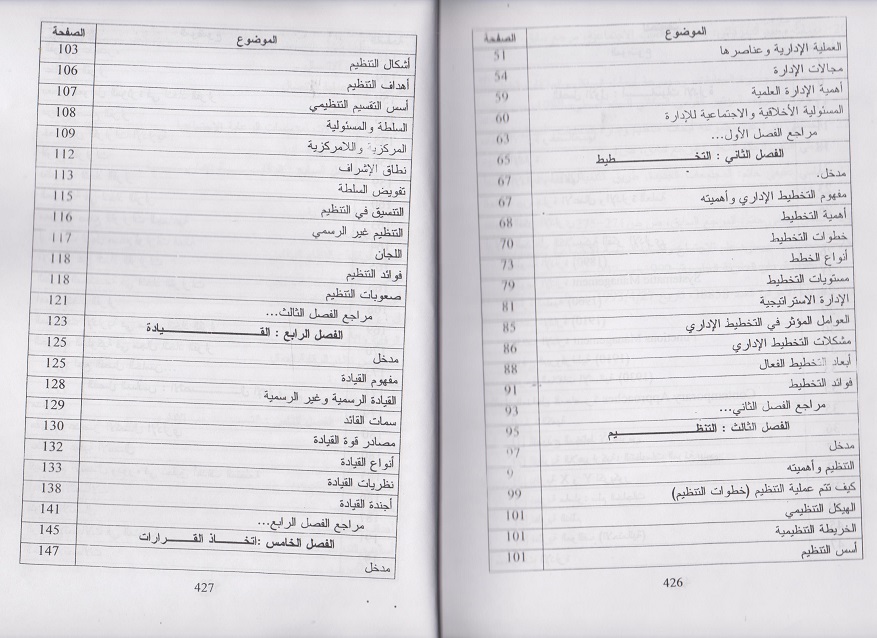 الموضوع الصفحة
العملية الإدارية وعناصرها 51
مجالات الإدارة 54
أهمية الإدارة العلمية 59
المسئولية الأخلاقية والاجتماعية للإدارة 60
مراجع الفصل الأول... 63
الفصل الثاني : التخـــــــــــطيط 65
مدخل. 67
مفهوم التخطيط الإداري وأهميته 67
أهمية التخطيط 68
خطوات التخطيط 70
أنواع الخطط 73
مستويات التخطيط 79
الإدارة الاستراتيجية 81
العوامل المؤثر في التخطيط الإداري 85
مشكلات التخطيط الإداري 86
أبعاد التخطيط الفعال 88
فوائد التخطيط 91
مراجع الفصل الثاني... 93
الفصل الثالث : التنظـــــــــــيم 95
مدخل 97
التنظيم وأهميته 9
كيف تتم عملية التنظيم (خطوات التنظيم) 99
الهيكل التنظيمي 101
الخريطة التنظيمية 101
أسس التنظيم 101
426
الموضوع الصفحة
أشكال التنظيم 103
أهداف التنظيم 106
أسس التقسيم التنظيمي 107
السلطة والمسئولية 108
المركزية واللامركزية 109
نطاق الإشراف 112
تفويض السلطة 113
التنسيق في التنظيم 115
التنظيم غير الرسمي 116
اللجان 117
فوائد التنظيم 118
صعوبات التنظيم 118
مراجع الفصل الثالث... 121
الفصل الرابع : القـــــــــــيادة 123
مدخل 125
مفهوم القيادة 125
القيادة الرسمية وغير الرسمية 128
سمات القائد 129
مصادر قوة القيادة 130
أنواع القيادة 132
نظريات القيادة 133
أجندة القيادة 138
مراجع الفصل الرابع... 141
الفصل الخامس :اتخـــاذ القـــرارات 145
مدخل 147
427